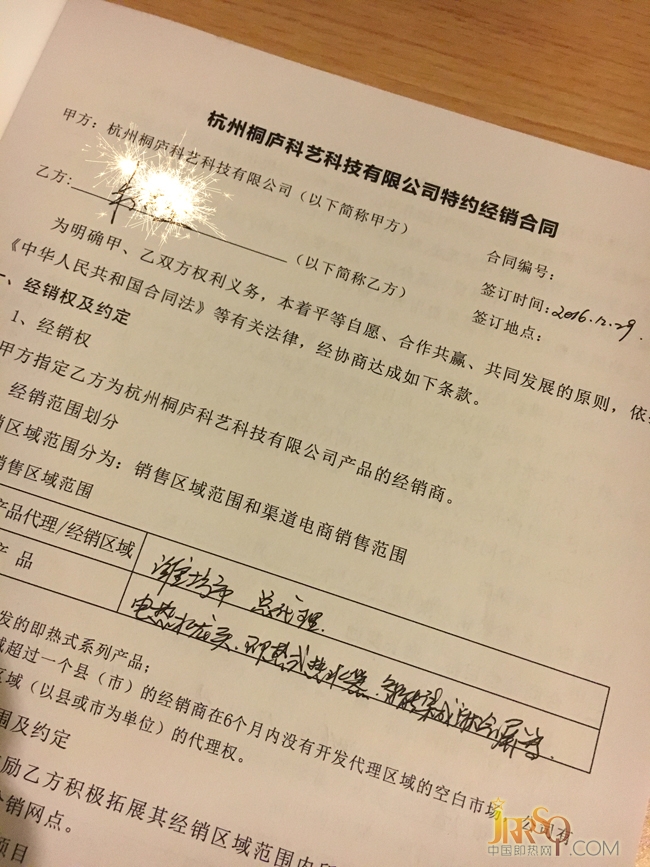 杭州桐庐科艺科技有限公司特约经销合同
甲方：杭州桐庐科艺科技有限公司（以下简称甲方）
合同编号：
乙方：（以下简称乙方）
签订时间：2016.12.29.
签订地点：
为明确甲、乙双方权利义务，本着平等自愿、合作共赢、共同发展的原则，依
《中华人民共和国合同法》等有关法律，经协商达成如下条款。
、经销权及约定
1、经销权
甲方指定乙方为杭州桐庐科艺科技有限公司产品的经销商。
经销范围划分
销区域范围分为：销售区域范围和渠道电商销售范围
销售区域范围
产品代理/经销区域
潍坊市 总代理.
产 品
电热水龙头.即热式热水器.
发的即热式系列产品；
域超过一个县（市）的经销商在6个月内没有开发代理区域的空白市场，公司有
区域（以县或市为单位）的代理权。
围及约定
励乙方积极拓展其经销区域范围内
分销网点。
项目
JRRSQ.COM
中国即热网